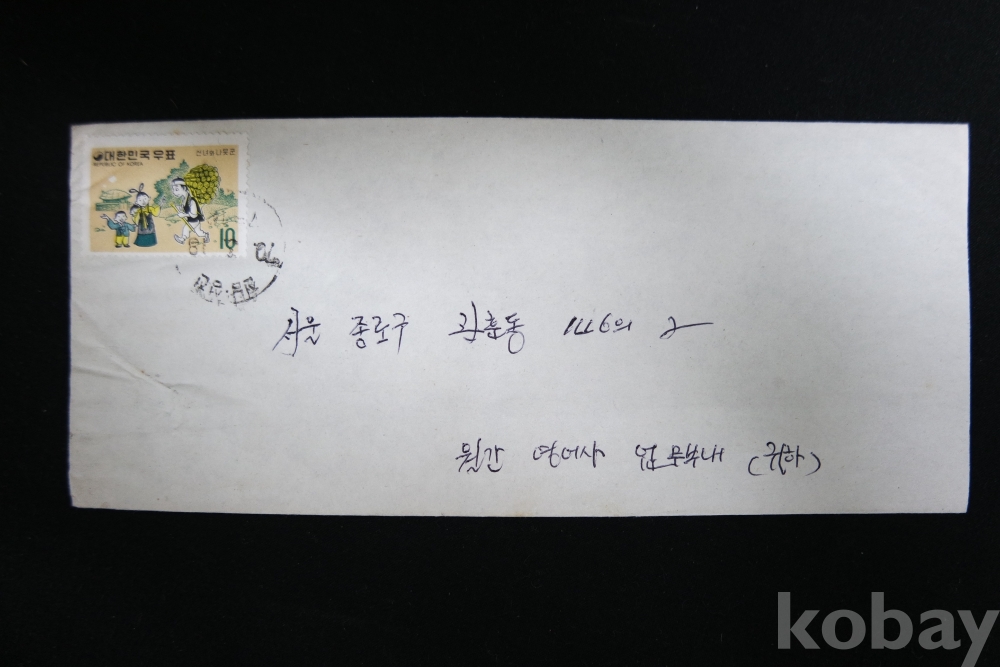 대한민국우표
REPUBLIC OF KOREA
선녀와나무꾼
10
서울 종로구 관훈동 146의 2
월간 영어사 업무부내 (귀하)
kobay